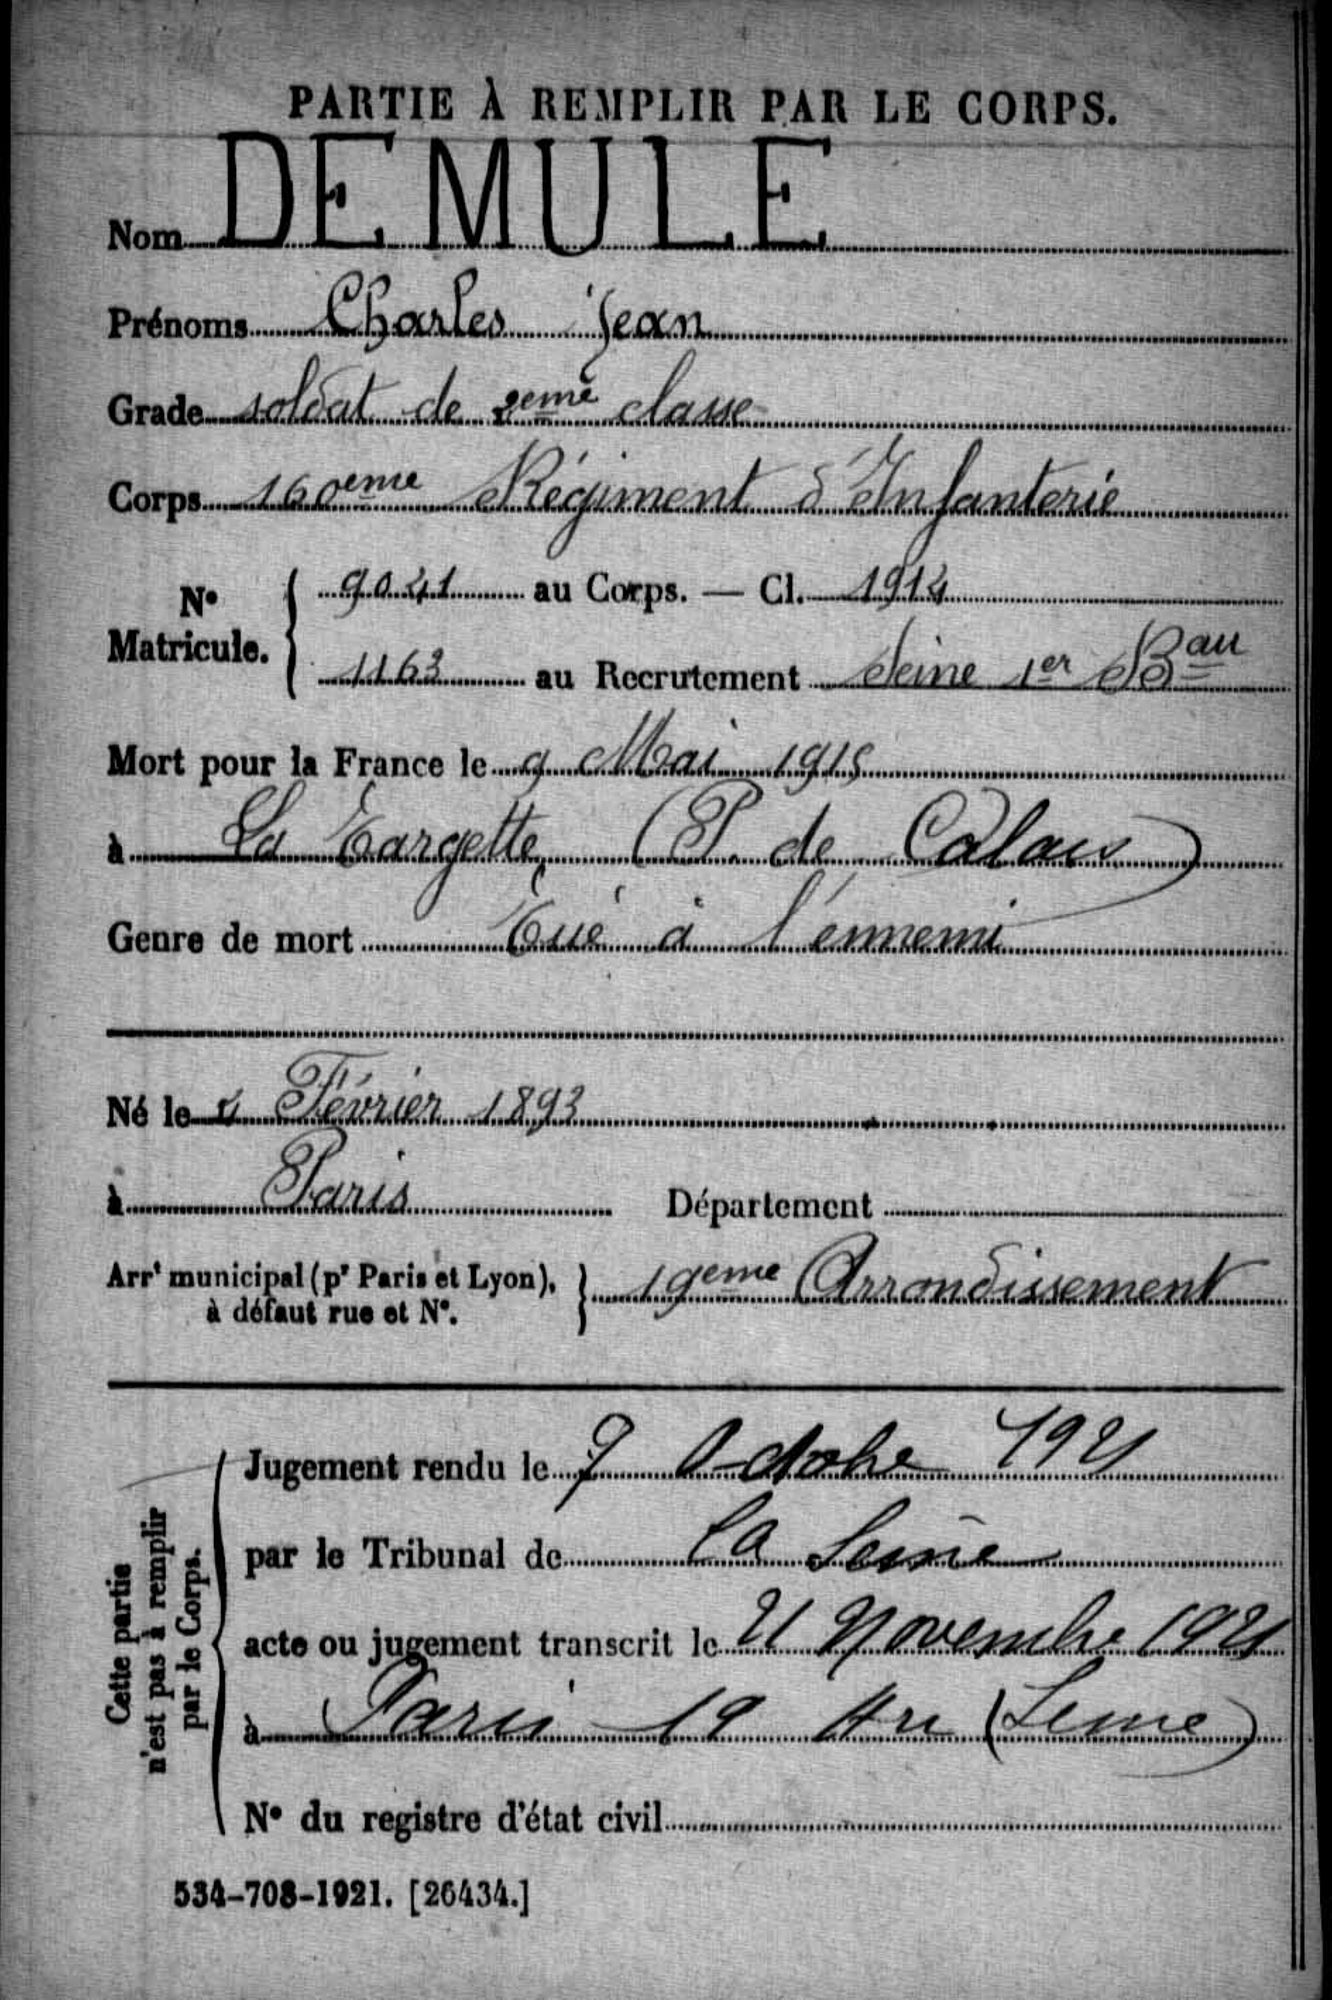 PARTIE À REMPLIR PAR LE CORPS.
Nom DEMULE
Prénoms Charles Jean
Grade soldat de 2eme classe
Corps 160eme Régiment d'Infanterie
N° Matricule. { 9041 au Corps. — Cl. 1914
1163 au Recrutement Seine 1er Bau
Mort pour la France le 9 Mai 1915
à La Targette (P. de Calais)
Genre de mort Tué à l'ennemi
Né le 4 Février 1893
à Paris Département
Arrt municipal (pr Paris et Lyon), à défaut rue et N°. } 19eme Arrondissement
Cette partie n'est pas à remplir par le Corps.
Jugement rendu le 7 Octobre 1921
par le Tribunal de la Seine
acte ou jugement transcrit le 21 Novembre 1921
à Paris 19 Arr (Seine)
N° du registre d'état civil
534-708-1921. [26434.]